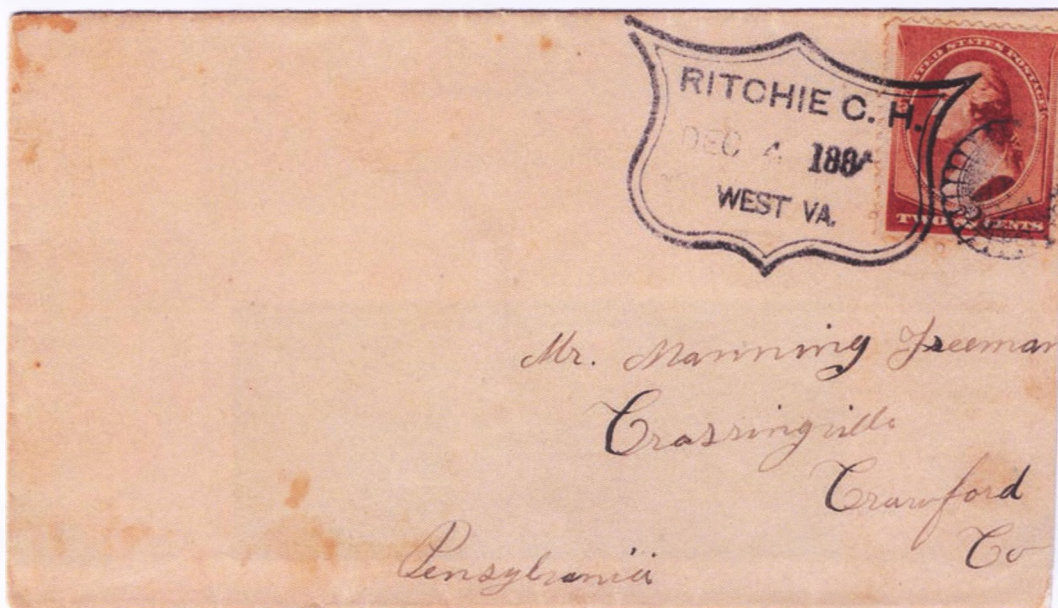 RITCHIE C. H.
DEC 4 188
WEST VA.
UNITED STATES POSTAGE
TWO CENTS
Mr. Manning Freeman
Crossingville
Crawford
Co
Pensylvania